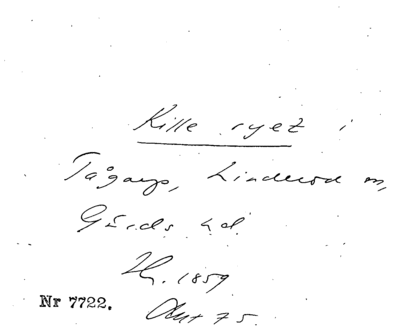 Kille ryet i
Tågarp, Linderöd sn,
Gärds hd.
1859
Nr 7722.